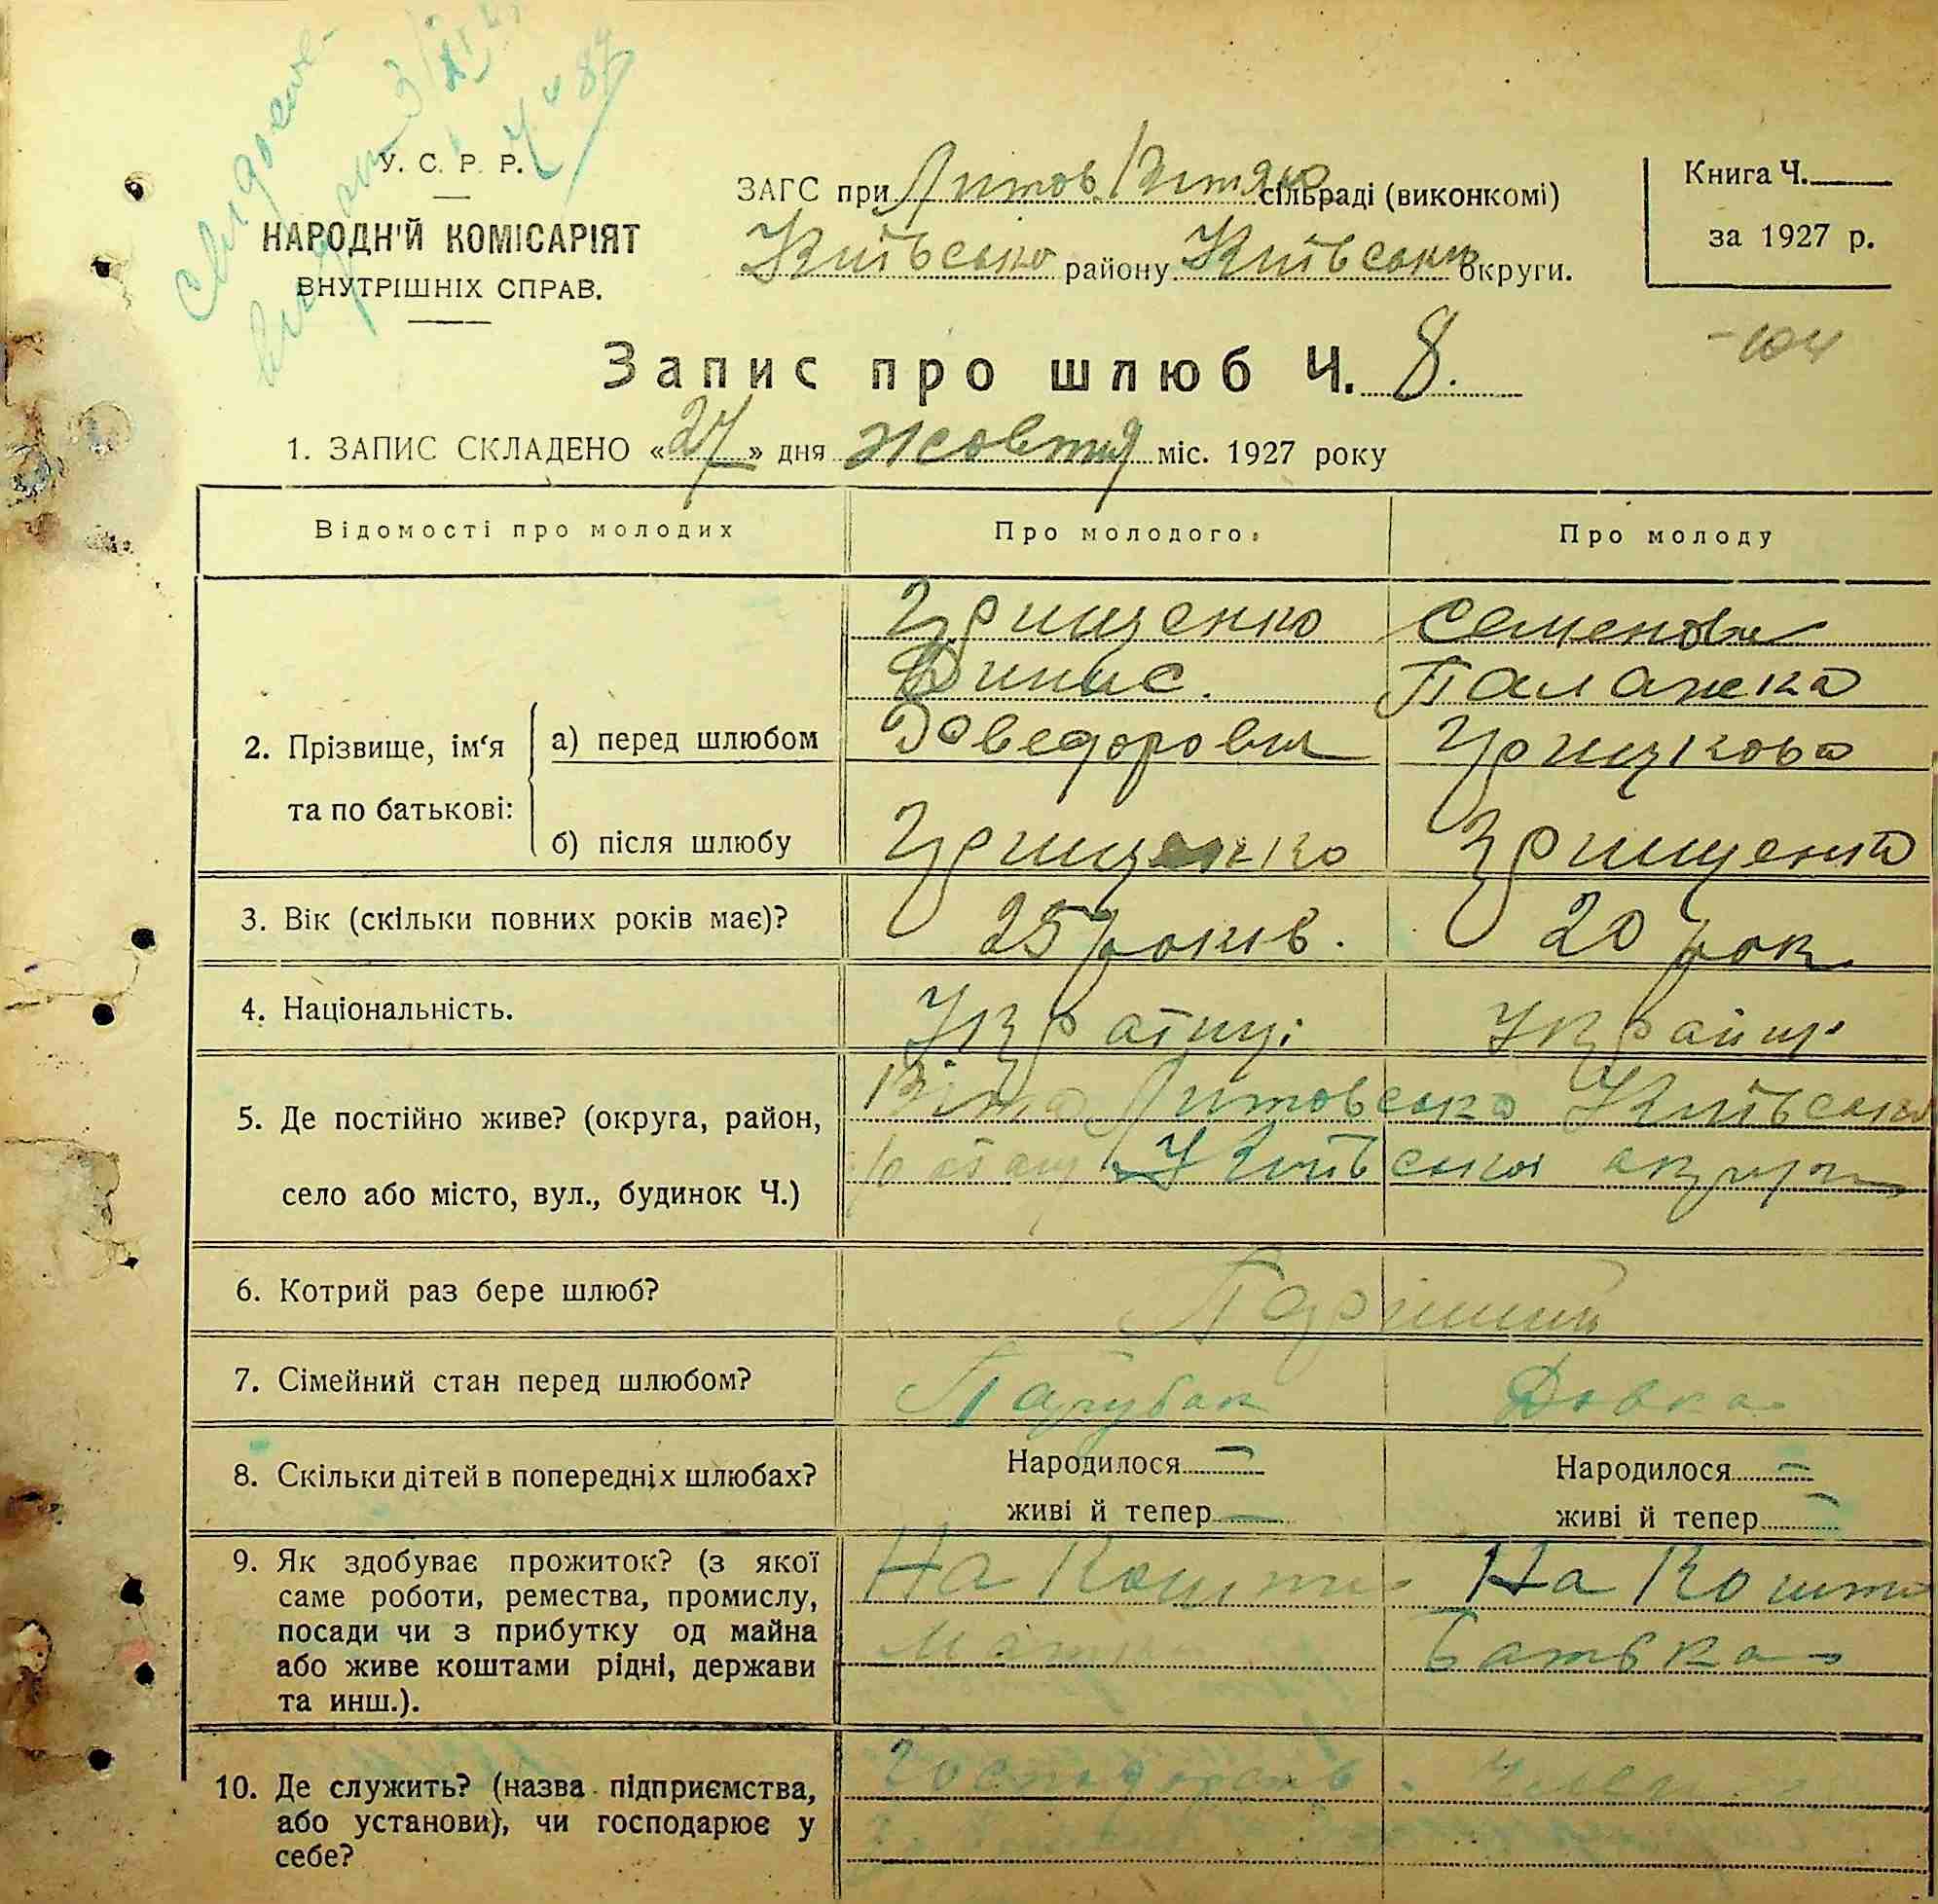 Свидоен.
У. С. Р. Р.
НАРОДН'Й КОМІСАРІЯТ
ВНУТРІШНІХ СПРАВ.
ЗАГС при Литов. Вітян сільраді (виконкомі)
Київсько району Київськи округи.
Книга Ч.
за 1927 р.
-104
Запис про шлюб Ч. 8.
1. ЗАПИС СКЛАДЕНО «27» дня жовтня міс. 1927 року
Відомості про молодих Про молодого: Про молоду
Грищенко Семенова
Динис. Палажка
2. Прізвище, ім‘я та по батькові: а) перед шлюбом Хведорович Грицкова
б) після шлюбу Грищенко Грищенко
3. Вік (скільки повних років має)? 25 років. 20 рок
4. Національність. Україці Украйці
5. Де постійно живе? (округа, район, Віта Литовська Київсько
село або місто, вул., будинок Ч.) Київської округи
6. Котрий раз бере шлюб? Перший
7. Сімейний стан перед шлюбом? Парубак Довка
8. Скільки дітей в попередніх шлюбах? Народилося — Народилося —
живі й тепер — живі й тепер —
9. Як здобуває прожиток? (з якої На Кошти На Кошти
саме роботи, ремества, промислу,
посади чи з прибутку од майна Батька
або живе коштами рідні, держави
та инш.).
10. Де служить? (назва підприємства,
або установи), чи господарює у
себе?